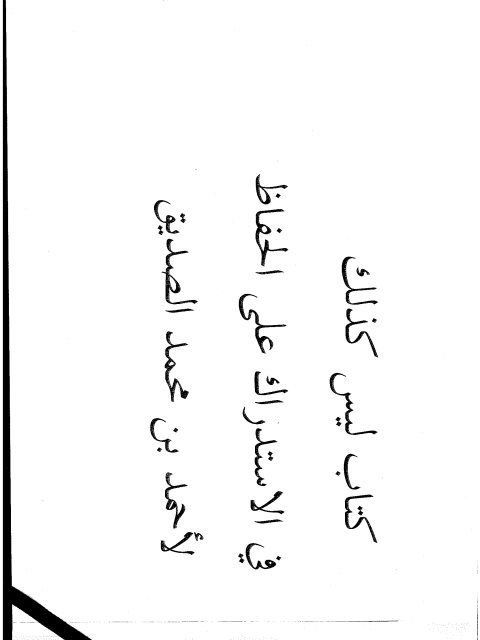 كتاب ليس كذلك
في الاستدراك على الحفاظ
لأحمد بن محمد الصديق